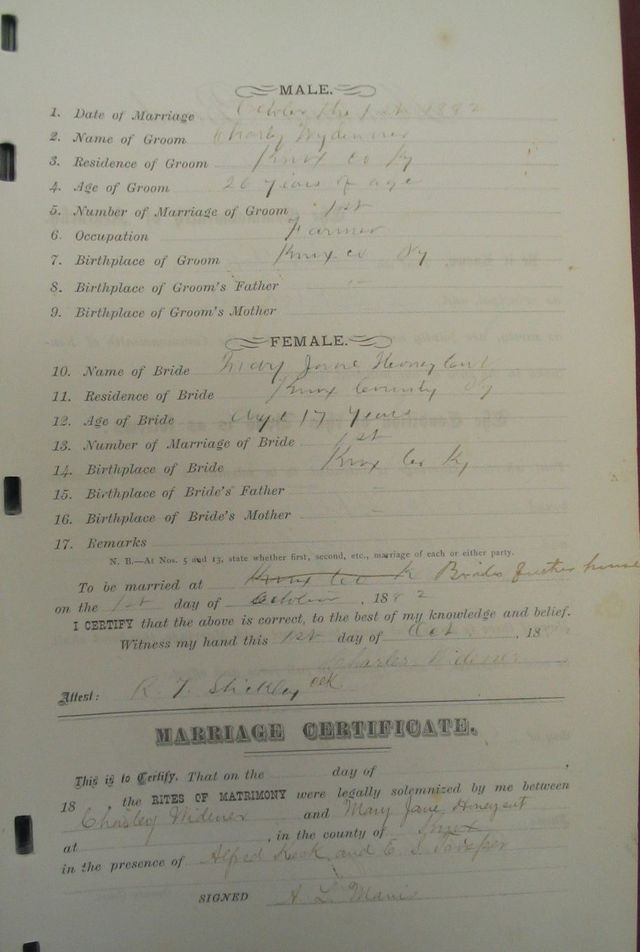 MALE.
1. Date of Marriage October the 1st 1892
2. Name of Groom Charley
3. Residence of Groom Knox co Ky
4. Age of Groom 26 years of age
5. Number of Marriage of Groom 1st
6. Occupation Farmer
7. Birthplace of Groom Knox co Ky
8. Birthplace of Groom's Father
9. Birthplace of Groom's Mother
FEMALE.
10. Name of Bride Mary Jane
11. Residence of Bride Knox County Ky
12. Age of Bride Age 17 Years
13. Number of Marriage of Bride 1st
14. Birthplace of Bride Knox Co Ky
15. Birthplace of Bride's Father
16. Birthplace of Bride's Mother
17. Remarks
N. B.—At Nos. 5 and 13, state whether first, second, etc., marriage of each or either party.
To be married at Knox Co K Brides house
on the 1st day of October, 1882
I CERTIFY that the above is correct, to the best of my knowledge and belief.
Witness my hand this 1st day of Oct, 18
Charles Widener
Attest: R. T. Stickley
MARRIAGE CERTIFICATE.
This is to Certify, That on the day of ,
18 , the RITES OF MATRIMONY were legally solemnized by me between
Charley Widener and Mary Jane Honeycut
at , in the county of Knox
in the presence of Alfred and E. S.
SIGNED A L